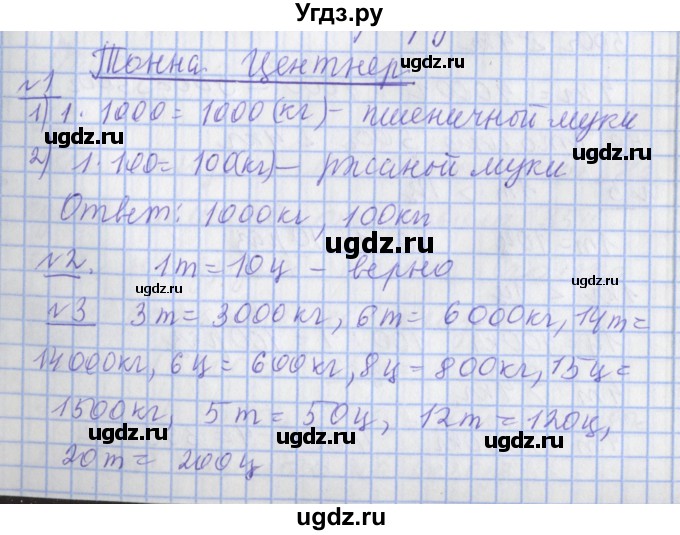 Угдз.ру
Тонна Центнер
№1
1) 1 · 1000 = 1000 (кг) – пшеничный муки
2) 1 · 100 = 100(кг) – ржаной муки
Ответ: 1000кг, 100кг
№2. 1т = 10ц – верно
№3 3т = 3000кг, 6т = 6000кг, 14т =
14000кг, 6ц = 600кг, 8ц = 800кг, 15ц =
1500кг, 5т = 50ц, 12т = 120ц,
20т = 200ц
ugdz.ru
ugdz.ru
ugdz.ru
ugdz.ru
ugdz.ru
ugdz.ru
ugdz.ru
ugdz.ru
ugdz.ru
ugdz.ru
ugdz.ru